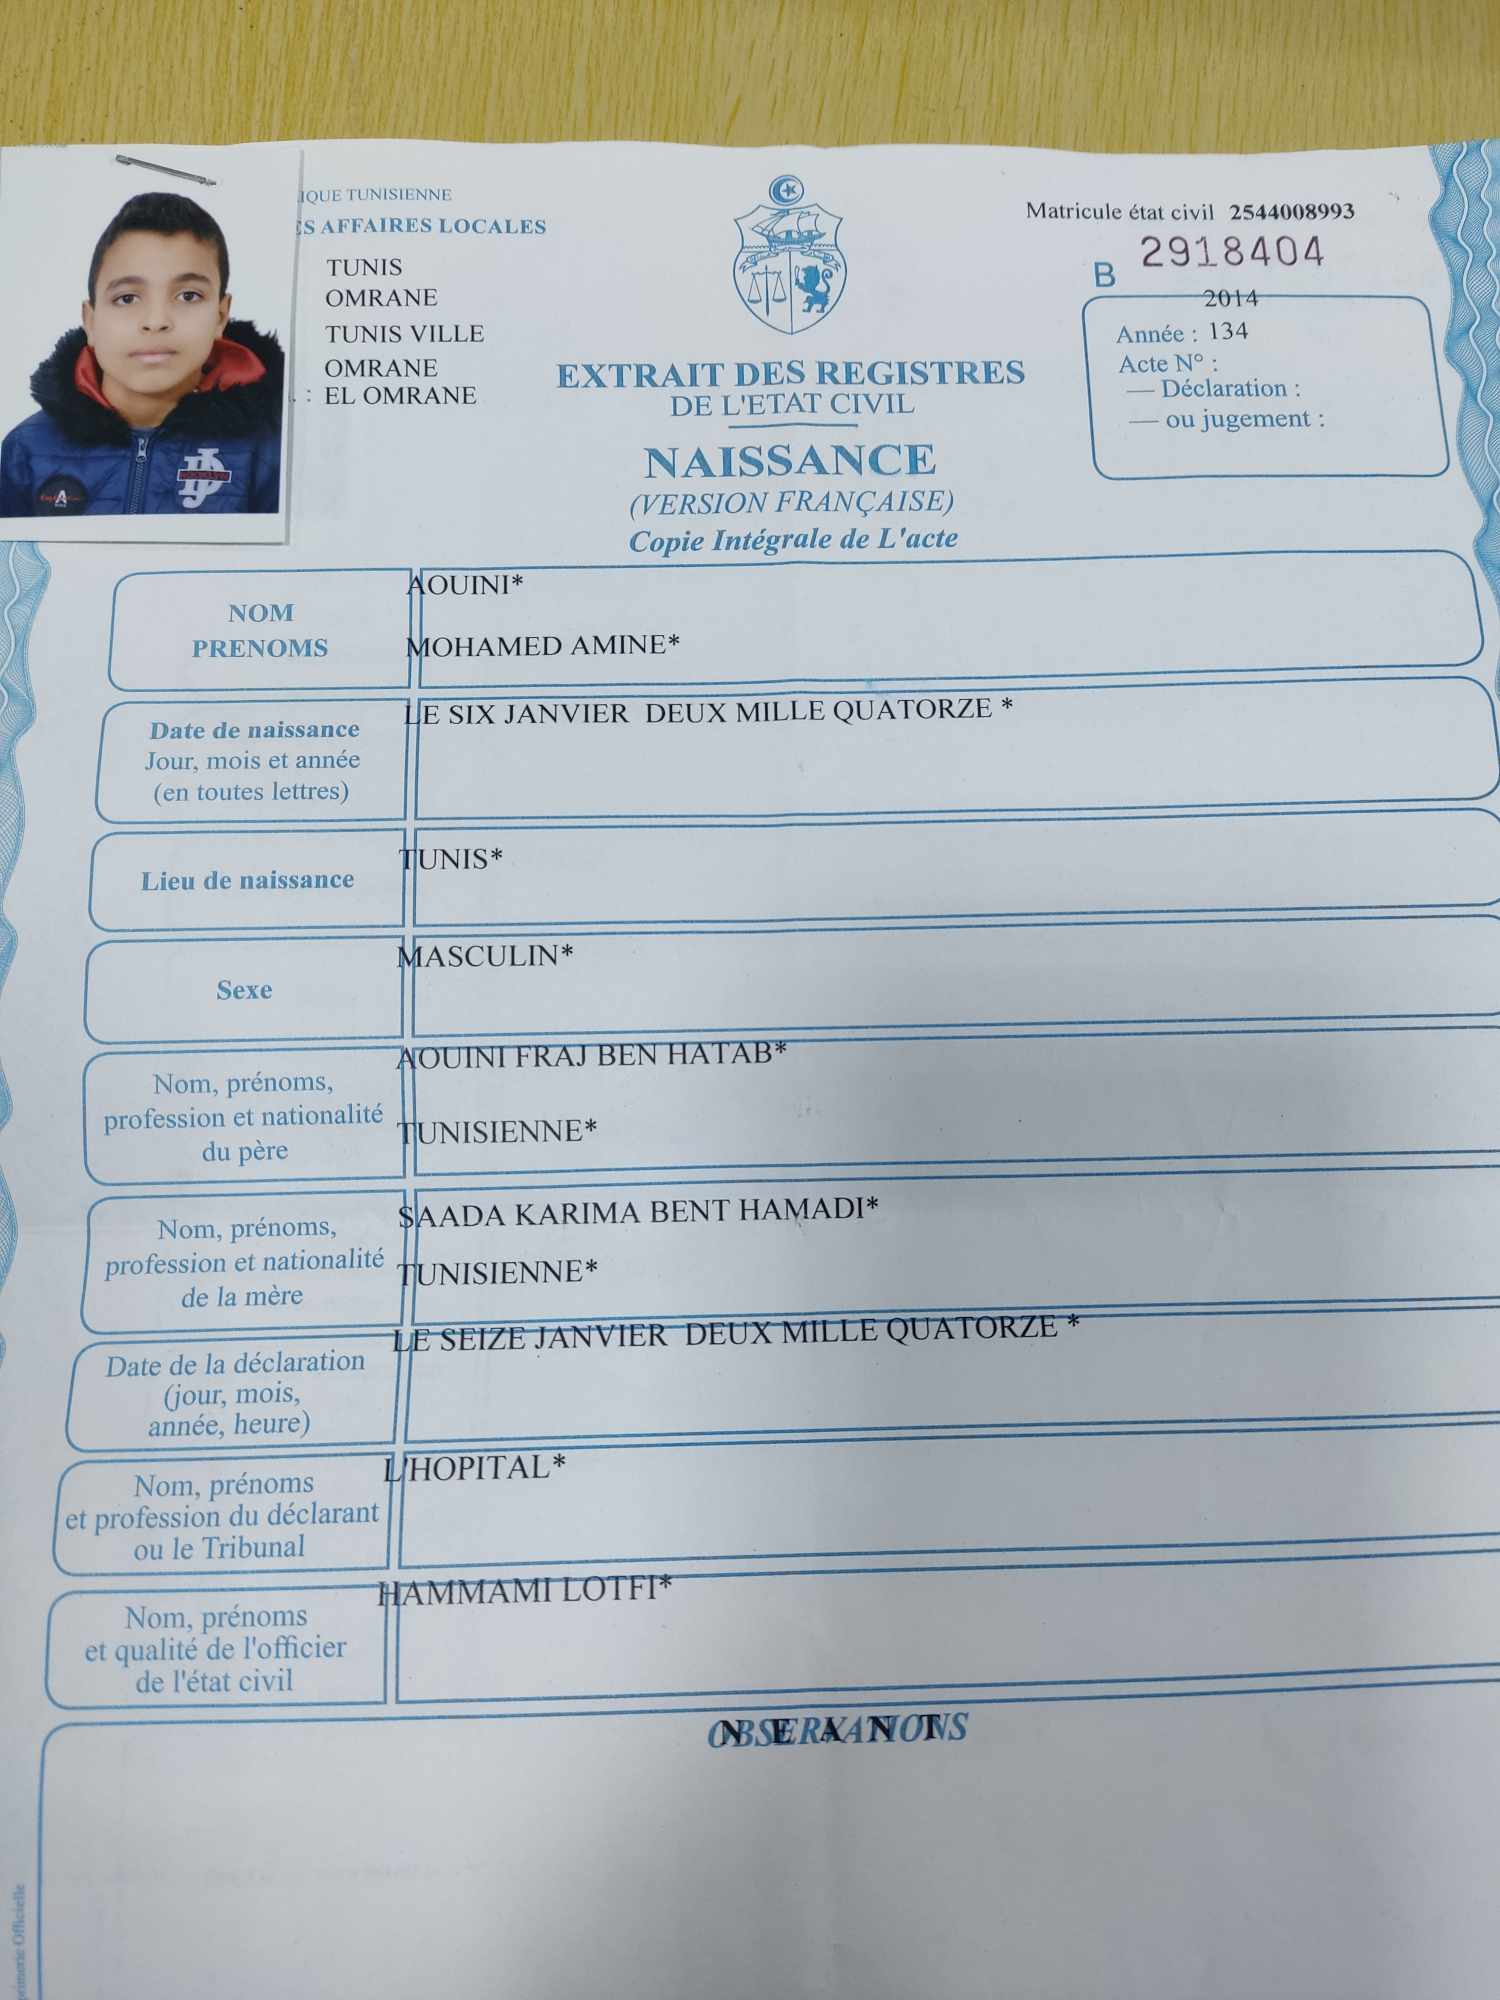 IQUE TUNISIENNE
ES AFFAIRES LOCALES
TUNIS
OMRANE
TUNIS VILLE
OMRANE
. : EL OMRANE
Matricule état civil 2544008993
B 2918404
2014
Année : 134
Acte N° :
— Déclaration :
— ou jugement :
EXTRAIT DES REGISTRES
DE L'ETAT CIVIL
NAISSANCE
(VERSION FRANÇAISE)
Copie Intégrale de L'acte
NOM
PRENOMS
AOUINI*
MOHAMED AMINE*
Date de naissance
Jour, mois et année
(en toutes lettres)
LE SIX JANVIER DEUX MILLE QUATORZE *
Lieu de naissance
TUNIS*
Sexe
MASCULIN*
Nom, prénoms,
profession et nationalité
du père
AOUINI FRAJ BEN HATAB*
TUNISIENNE*
Nom, prénoms,
profession et nationalité
de la mère
SAADA KARIMA BENT HAMADI*
TUNISIENNE*
Date de la déclaration
(jour, mois,
année, heure)
LE SEIZE JANVIER DEUX MILLE QUATORZE *
Nom, prénoms
et profession du déclarant
ou le Tribunal
L'HOPITAL*
Nom, prénoms
et qualité de l'officier
de l'état civil
HAMMAMI LOTFI*
OBSERVATIONS
N E A N T
primerie Officielle